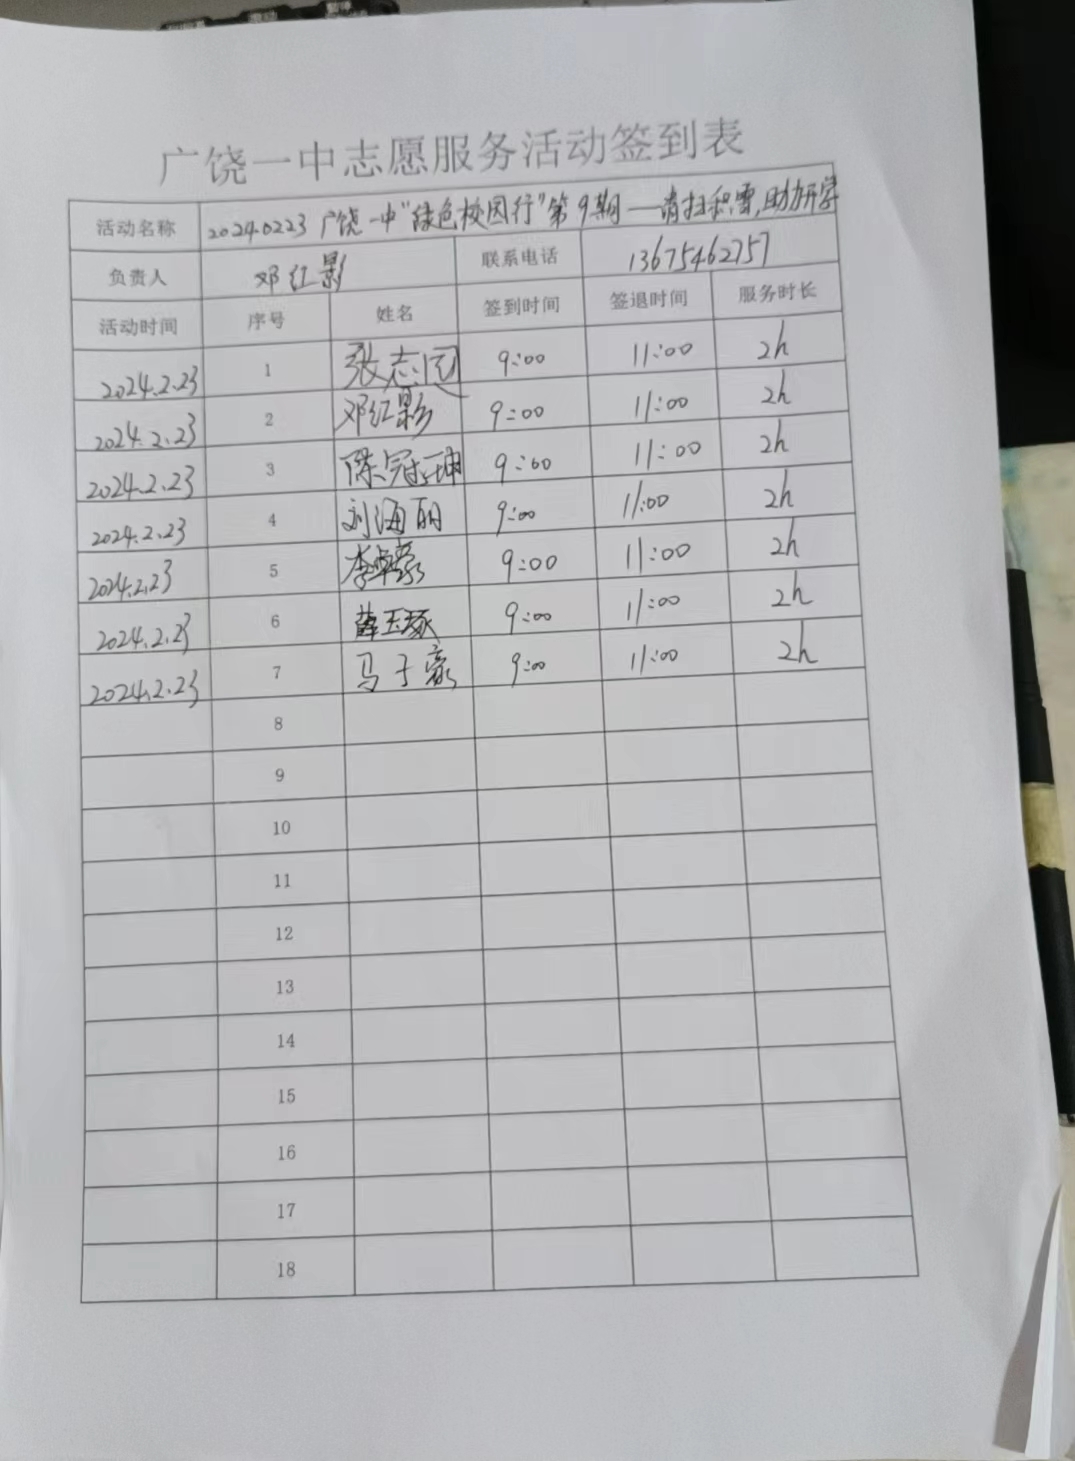 广饶一中志愿服务活动签到表
活动名称 20240223 广饶一中“绿色校园行”第9期——清扫积雪,助力开学
负责人 邓红影 联系电话 13675462757
活动时间 序号 姓名 签到时间 签退时间 服务时长
2024.2.23 1 张志 9:00 11:00 2h
2024.2.23 2 邓红影 9:00 11:00 2h
2024.2.23 3 陈冠坤 9:00 11:00 2h
2024.2.23 4 刘海丽 9:00 11:00 2h
2024.2.23 5 李卓豪 9:00 11:00 2h
2024.2.23 6 薛玉琢 9:00 11:00 2h
2024.2.23 7 马子豪 9:00 11:00 2h
8
9
10
11
12
13
14
15
16
17
18